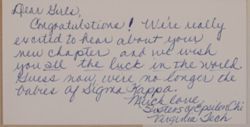 Dear Girls,
Congratulations! We're really
excited to hear about your
new chapter and we wish
you all the luck in the world.
Guess now, we're no longer the
babies of Sigma Kappa.
Much love,
Sisters of Epsilon Chi
Virginia Tech